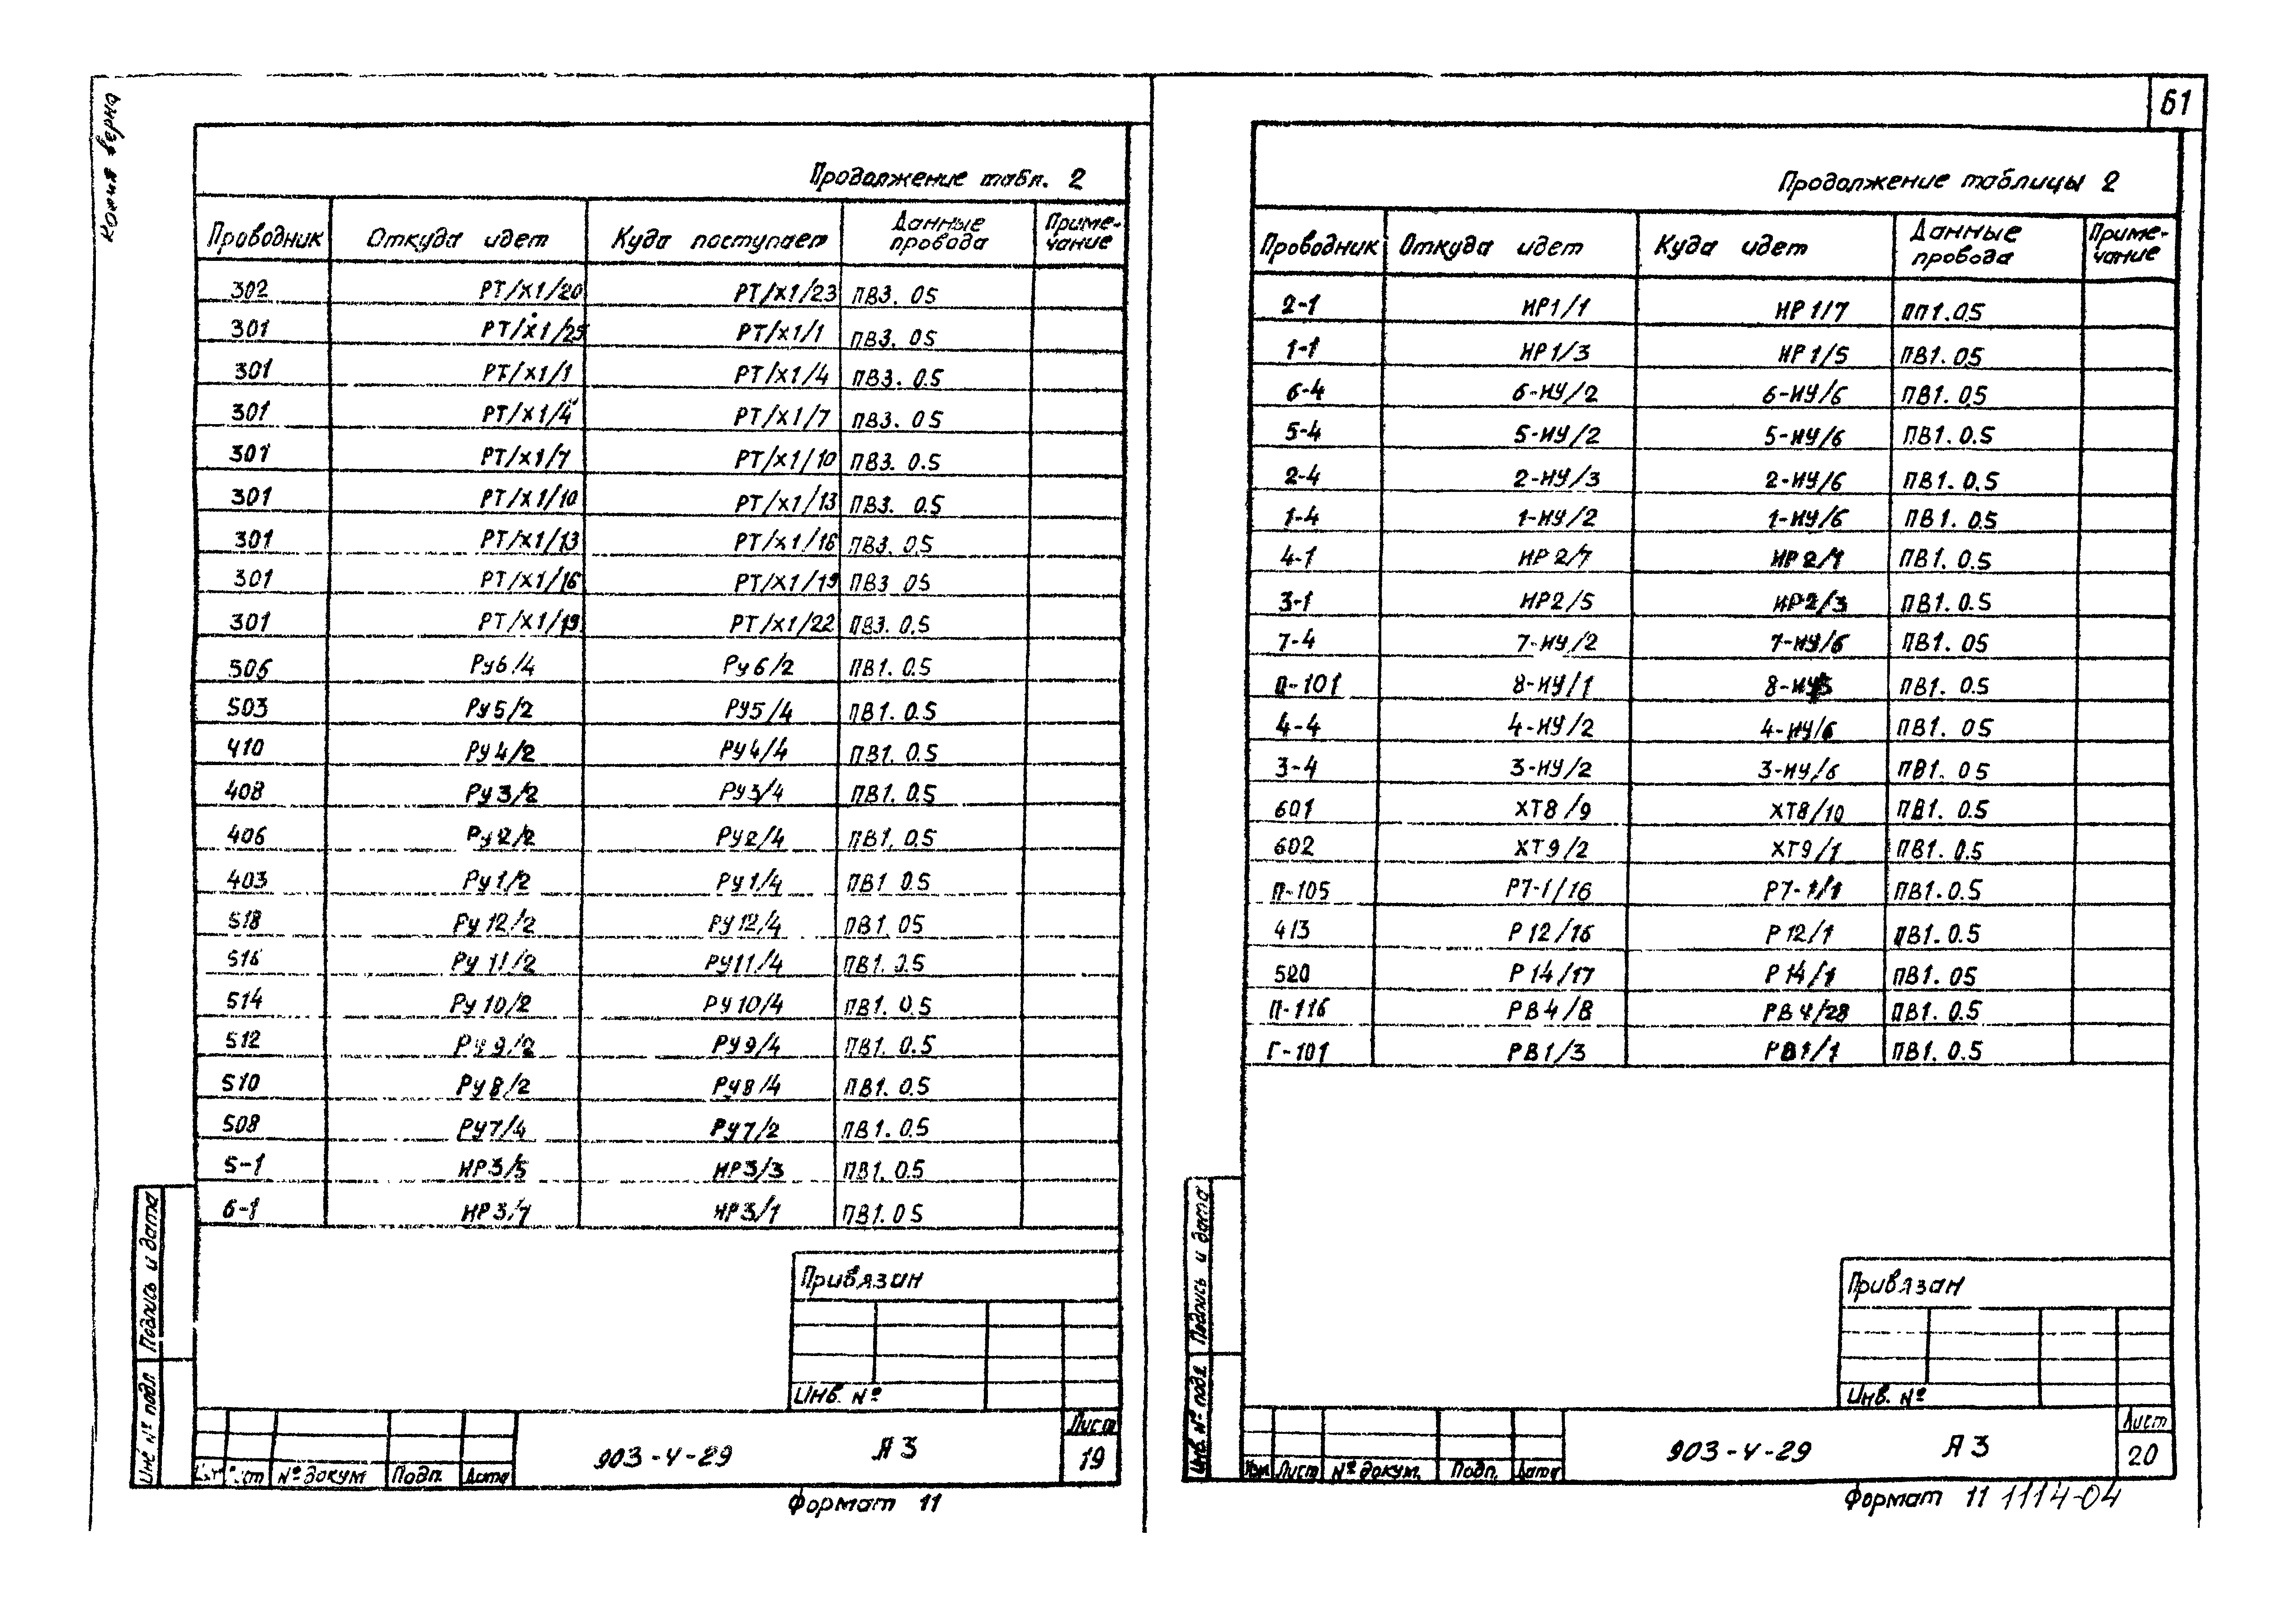 61
Копия верна
Продолжение табл. 2
Проводник Откуда идет Куда поступает Данные провода Приме-чание
302 РТ/Х1/20 РТ/Х1/23 ПВ3. 05
301 РТ/Х1/25 РТ/Х1/1 ПВ3. 05
301 РТ/Х1/1 РТ/Х1/4 ПВ3. 0.5
301 РТ/Х1/4 РТ/Х1/7 ПВ3. 05
301 РТ/Х1/7 РТ/Х1/10 ПВ3. 0.5
301 РТ/Х1/10 РТ/Х1/13 ПВ3. 0.5
301 РТ/Х1/13 РТ/Х1/16 ПВ3. 0.5
301 РТ/Х1/16 РТ/Х1/19 ПВ3 05
301 РТ/Х1/19 РТ/Х1/22 ПВ3. 0.5
506 РУ6/4 РУ6/2 ПВ1. 0.5
503 РУ5/2 РУ5/4 ПВ1. 0.5
410 РУ4/2 РУ4/4 ПВ1. 0.5
408 РУ3/2 РУ3/4 ПВ1. 0.5
406 РУ2/2 РУ2/4 ПВ1. 0.5
403 РУ1/2 РУ1/4 ПВ1 0.5
518 РУ12/2 РУ12/4 ПВ1. 05
516 РУ11/2 РУ11/4 ПВ1. 0.5
514 РУ10/2 РУ10/4 ПВ1. 0.5
512 РУ9/2 РУ9/4 ПВ1. 0.5
510 РУ8/2 РУ8/4 ПВ1. 0.5
508 РУ7/4 РУ7/2 ПВ1. 0.5
5-1 ИР3/5 ИР3/3 ПВ1. 0.5
6-1 ИР3/7 ИР3/1 ПВ1. 05
Привязан
Инв. №
Лист
903-4-29 Я3 19
Лист № докум Подп. Дата
Инв № подл Подпись и дата
Формат 11
Продолжение таблицы 2
Проводник Откуда идет Куда идет Данные провода Приме-чание
2-1 ИР1/1 ИР1/7 ПП1.0.5
1-1 ИР1/3 ИР1/5 ПВ1. 0.5
6-4 6-ИУ/2 6-ИУ/6 ПВ1. 0.5
5-4 5-ИУ/2 5-ИУ/6 ПВ1. 0.5
2-4 2-ИУ/3 2-ИУ/6 ПВ1. 0.5
1-4 1-ИУ/2 1-ИУ/6 ПВ1. 0.5
4-1 ИР2/7 ИР2/1 ПВ1. 0.5
3-1 ИР2/5 ИР2/3 ПВ1. 0.5
7-4 7-ИУ/2 7-ИУ/6 ПВ1. 05
П-101 8-ИУ/1 ПВ1. 0.5
4-4 4-ИУ/2 4-ИУ/6 ПВ1. 05
3-4 3-ИУ/2 3-ИУ/6 ПВ1. 05
601 ХТ8/9 ХТ8/10 ПВ1. 0.5
602 ХТ9/2 ХТ9/1 ПВ1. 0.5
П-105 Р7-1/16 Р7-1/1 ПВ1. 0.5
413 Р12/16 Р12/1 ПВ1. 0.5
520 Р14/17 Р14/1 ПВ1. 05
П-116 РВ4/8 РВ4/28 ПВ1. 0.5
Г-101 РВ1/3 РВ1/1 ПВ1. 0.5
Привязан
Инв. №
Лист
903-4-29 Я3 20
Изм Лист № докум. Подп. Дата
Инв. № подл Подпись и дата
Формат 11 1114-04